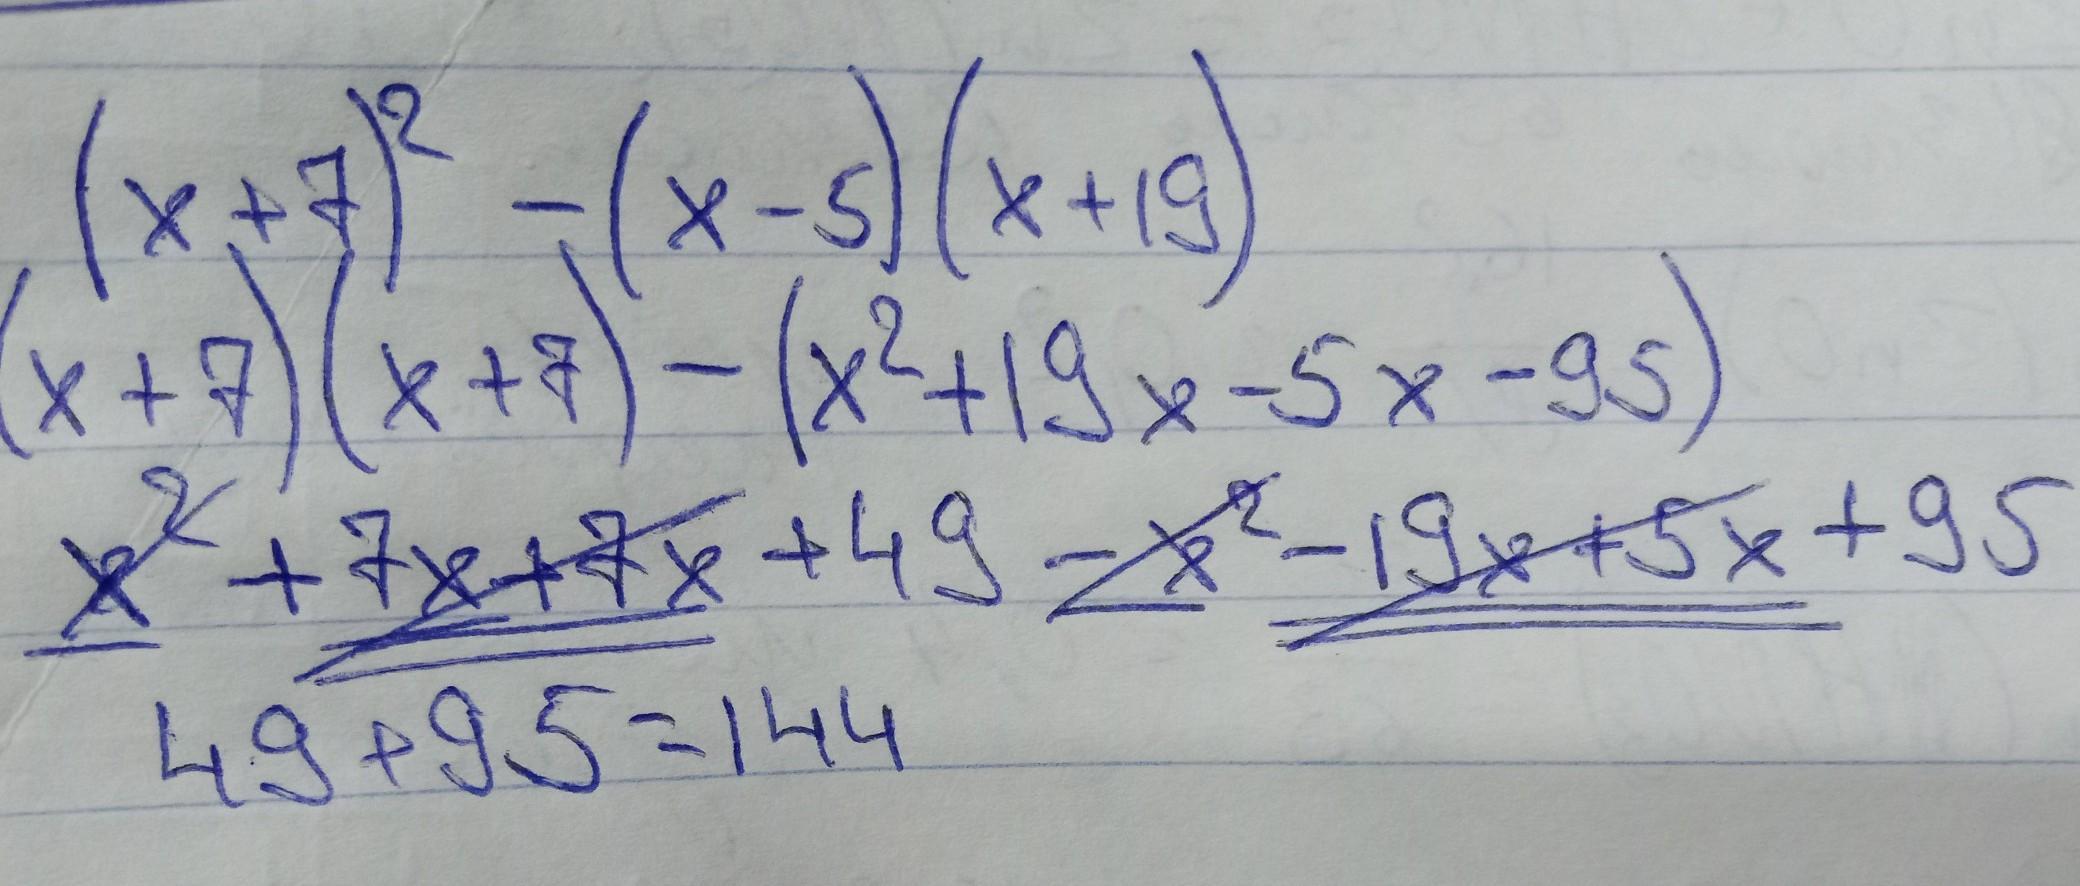 (x+7)² -(x-5)(x+19)
(x+7)(x+7)-(x²+19x-5x-95)
x²+7x+7x+49-x²-19x+5x+95
49+95=144